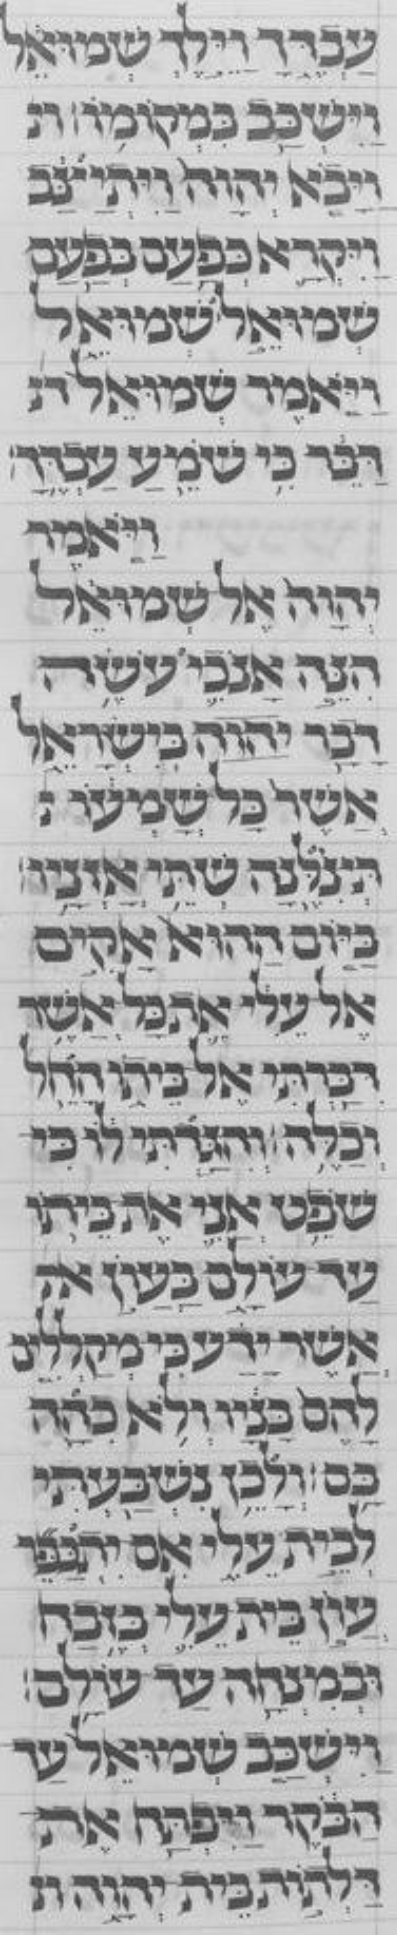 עַבְדֶּךָ וַיֵּלֶךְ שְׁמוּאֵל
וַיִּשְׁכַּב בִּמְקוֹמוֹ׃
וַיָּבֹא יְהוָה וַיִּתְיַצַּב
וַיִּקְרָא כְפַעַם בְּפַעַם
שְׁמוּאֵל שְׁמוּאֵל
וַיֹּאמֶר שְׁמוּאֵל
דַּבֵּר כִּי שֹׁמֵעַ עַבְדֶּךָ׃
וַיֹּאמֶר
יְהוָה אֶל שְׁמוּאֵל
הִנֵּה אָנֹכִי עֹשֶׂה
דָבָר בְּיִשְׂרָאֵל
אֲשֶׁר כָּל שֹׁמְעוֹ
תְּצִלֶּנָה שְׁתֵּי אָזְנָיו׃
בַּיּוֹם הַהוּא אָקִים
אֶל עֵלִי אֵת כָּל אֲשֶׁר
דִּבַּרְתִּי אֶל בֵּיתוֹ הָחֵל
וְכַלֵּה׃ וְהִגַּדְתִּי לוֹ כִּי
שֹׁפֵט אֲנִי אֶת בֵּיתוֹ
עַד עוֹלָם בַּעֲוֺן
אֲשֶׁר יָדַע כִּי מְקַלְלִים
לָהֶם בָּנָיו וְלֹא כִהָה
בָּם׃ וְלָכֵן נִשְׁבַּעְתִּי
לְבֵית עֵלִי אִם יִתְכַּפֵּר
עֲוֺן בֵּית עֵלִי בְּזֶבַח
וּבְמִנְחָה עַד עוֹלָם׃
וַיִּשְׁכַּב שְׁמוּאֵל עַד
הַבֹּקֶר וַיִּפְתַּח אֶת
דַּלְתוֹת בֵּית יְהוָה